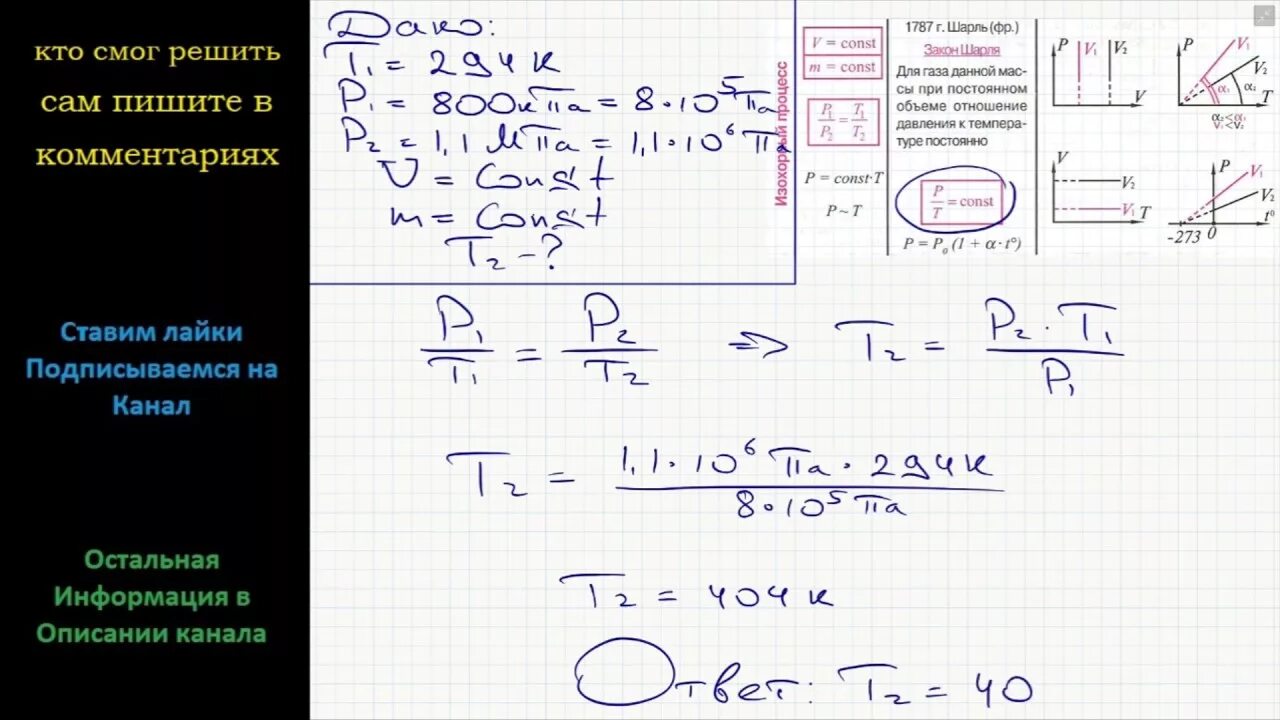 кто смог решить
сам пишите в
комментариях
Ставим лайки
Подписываемся на
Канал
Остальная
Информация в
Описании канала
Дано:
T₁ = 294 К
P₁ = 800 кПа = 8·10⁵ Па
P₂ = 1,1 МПа = 1,1·10⁶ Па
V = Const
m = Const
T₂ - ?
Изохорный процесс
V = const
m = const
P₁/P₂ = T₁/T₂
P = const·T
P ~ T
1787 г. Шарль (фр.)
Закон Шарля
Для газа данной мас-
сы при постоянном
объеме отношение
давления к темпера-
туре постоянно
P/T = const
P = P₀ (1 + α·t°)
P V₁ V₂
V
P V₁
V₂
α₁ α₂
T
α₂<α₁
V₁<V₂
V
V₂
V₁ T
P V₁
V₂
-273 0 t°
P₁/T₁ = P₂/T₂ => T₂ = P₂ · T₁/P₁
T₂ = 1,1·10⁶ Па · 294 К/8·10⁵ Па
T₂ = 404 К
Ответ: T₂ = 40